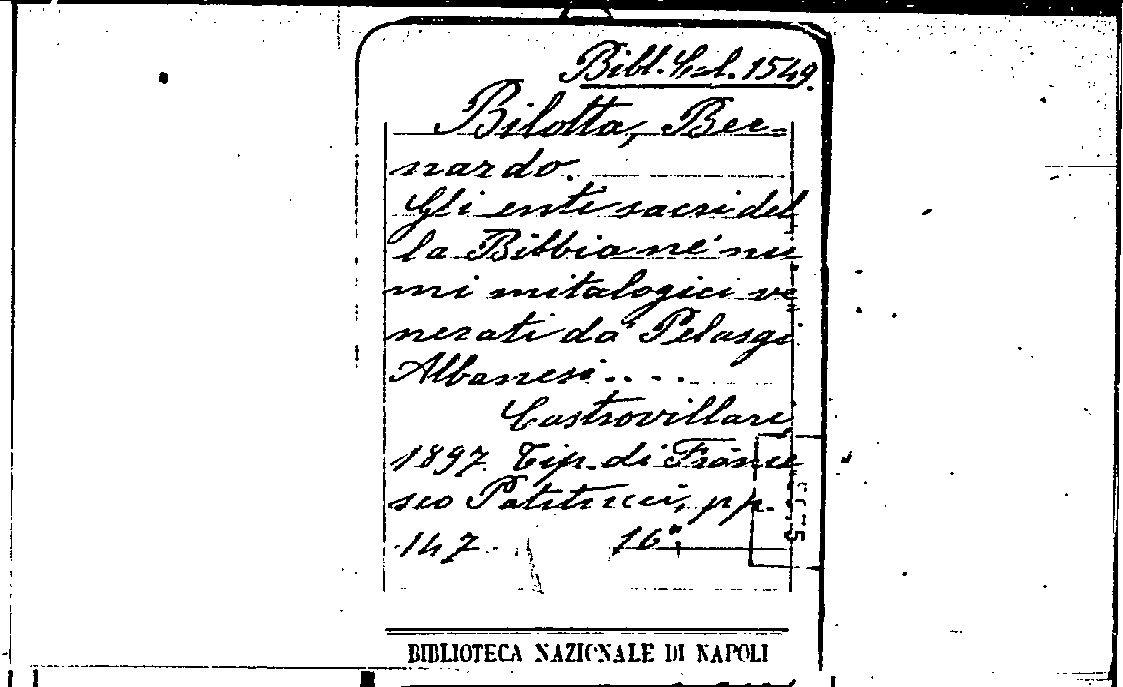 Bibl. Cal. 1549.
Bilotta, Ber-
nardo.
Gli enti sacri del
la Bibbia ne' nu
mi mitalogici ve
nerati da' Pelasgi
Albanesi....
Castrovillari,
1897. Tip. di France
sco Patitucci, pp.
147 16°.
BIBLIOTECA NAZIONALE DI NAPOLI